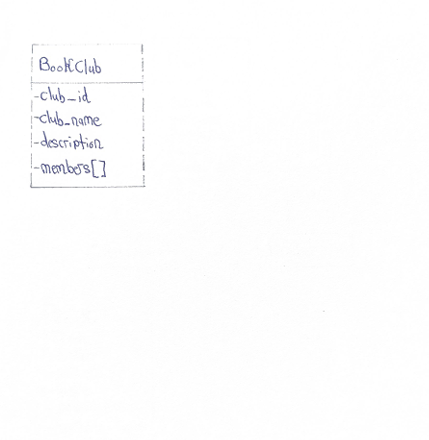 BookClub
-club_id
-club_name
-description
-members[]